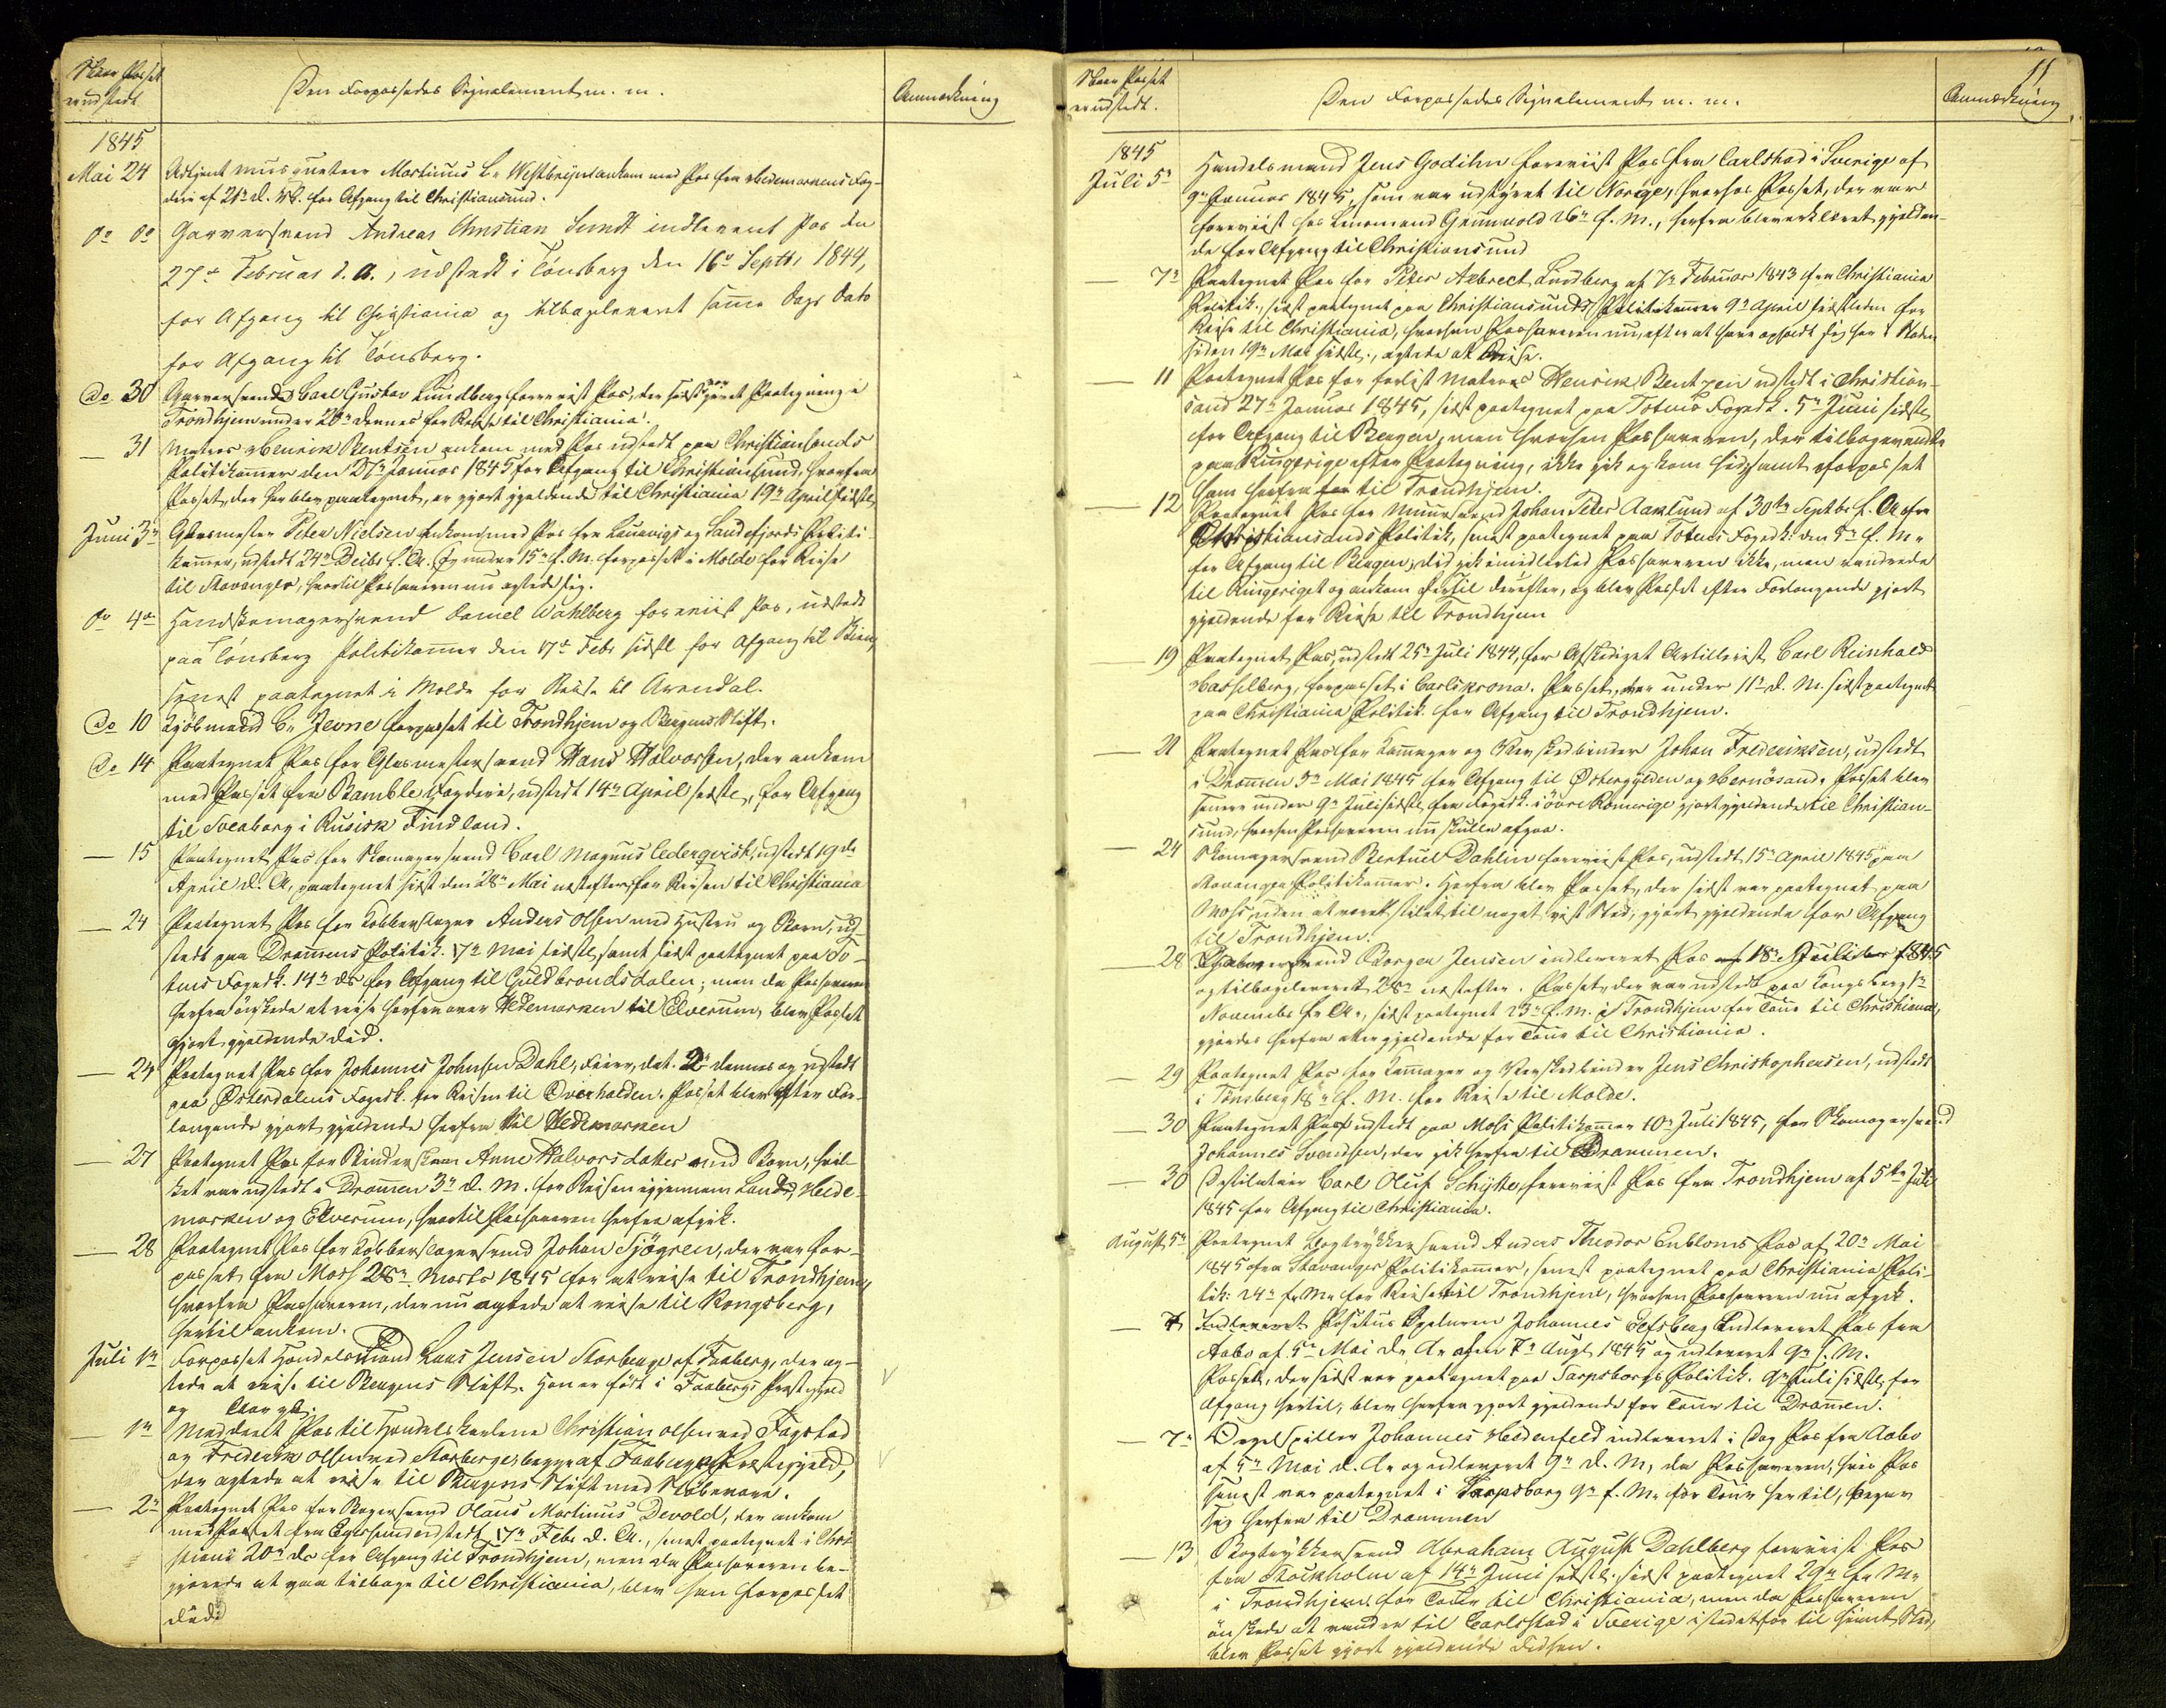 Naar Passet
er udstedt
Den Forpassedes Signalement m. m.
Anmærkning
1845
Mai 24 Udtjent Musqueteer Martinus L. Westbye ankom med Pas fra Hedemarkens Fog-
deri af 21de d. M. for Afgang til Christiansund.
do do Garversvend Andreas Christian Sundt indleveret Pas den
27de Februar d. A., udstedt i Tönsberg den 16de Septbr 1844,
for Afgang til Christiania og tilbageleveret samme Dags Dato
for Afgang til Tönsberg.
do 30 Garversvend Carl Gustav Lundberg foreviist Pas, der sidst var givet Paategning i
Trondhjem under 20de dennes for Reise til Christiania.
— 31 Matros Henrik Bentsen ankom med Pas udstedt paa Christiansands
Politikammer den 27de Januar 1845 for Afgang til Christiansund, hvorfra
Passet, der her blev paategnet, er gjort gjeldende til Christiania 19de April sidstl.
Juni 3de Glasmester Peter Nielsen ankom med Pas fra Laurvigs og Sandefjords Politi-
kammer, udstedt 24de Decbr f. A. og under 15de f. M. forpasset i Molde for Reise
til Stavanger, hvortil Pashaveren nu agtede sig.
do 4de Handskemagersvend Daniel Wahlberg foreviist Pas, udstedt
paa Tönsberg Politikammer den 17de Febr sidstl for Afgang til Skien,
senest paategnet i Molde for Reise til Arendal.
do 10 Kjöbmand C. Jevne forpasset til Trondhjem og Bergens Stift.
do 14 Paategnet Pas for Glasmestersvend Hans Halvorsen, der ankom
med Passet fra Bamble Fogderi, udstedt 14de April sidstl., for Afgang
til Sveaborg i Rusisk Findland.
— 15 Paategnet Pas for Skomagersvend Carl Magnus Cederqvist, udstedt 19de
April d. A, paategnet sidst den 28de Mai næstefter for Reisen til Christiania
— 24 Paategnet Pas for Kobberslager Anders Olsen med Hustru og Barn, ud-
stedt paa Drammens Politik. 17de Mai sidstl, samt sidst paategnet paa To-
tens Fogedk. 14de ds for Afgang til Guldbrandsdalen; men da Pashaveren
herfra önskede at reise herfra over Hedemarken til Elverum, blev Passet
gjort gjeldende did.
— 24 Paategnet Pas for Johannes Johnsen Dahl, Feier, dat. 2de dennes og udstedt
paa Österdalens Fogedk. for Reisen til Overhalden. Passet blev efter For-
langende gjort gjeldende herfra til Hedemarken
— 27 Paategnet Pas for Binderske Anne Halvorsdatter med Barn, hvil-
ket var udstedt i Drammen 3de d. M. for Reisen igjennem Land, Hede-
marken og Elverum, hvortil Pashaveren herfra afgik.
— 28 Paategnet Pas for Kobberslagersvend Johan Sjögren, der var for-
passet fra Moss 28de Marts 1845 for at reise til Trondhjem,
hvorfra Pashaveren, der nu agtede at reise til Kongsberg,
hertil ankom.
Juli 1ste Forpasset Handelsmand Lars Jensen Storberge af Faaberg, der ag-
tede at reise til Bergens Stift. Han er födt i Faabergs Præstegjeld
og Aar gl.
— 1ste Meddeelt Pas til Handelskarlene Christian Olsen ved Fagstad
og Frederik Olsen ved Storberge, begge af Faabergs Præstegjeld,
der agtede at reise til Bergens Stift med Stöbevare.
— 2de Paategnet Pas for Bagersvend Olaus Martinus Devold, der ankom
med Passet fra Egersund udstedt 17de Febr d. A., senest paategnet i Chri-
stiania 20de ds for Afgang til Trondhjem, men da Pashaveren be-
gjærede at gaa tilbage til Christiania, blev han forpasset
did.
11
Naar Passet
er udstedt.
Den Forpassedes Signalement m. m.
Anmærkning
1845
Juli 5te Handelsmand Jens Godihn foreviist Pas fra Carlstad i Sverige af
9de Januar 1845, som var udstyret til Norge, hvorhos Passet, der var
foreviist hos Lensmand Grünwold 26de f. M., herfra blev erklæret gjelden-
de for Afgang til Christiansund
— 7de Paategnet Pas for Peter Aebrect Lindberg af 7de Februar 1843 fra Christiania
Politik., sidst paategnet paa Christiansunds Politikammer 9de April sidstleden for
Reise til Christiania, hvorhen Pashaveren nu, efter at have opholdt sig her i Staden
siden 19de Mai sidstl., agtede at reise.
— 11 Paategnet Pas for forlist Matros Henrik Bentzen udstedt i Christian-
sand 27de Januar 1845, sidst paategnet paa Totens Fogedk. 5te Juni sidstl
for Afgang til Bergen, men hvorhen Pashaveren, der tilbagevendte
paa Ringerige efter Paategning, ikke gik og kom hid, samt forpasset
ham herfra til Trondhjem.
— 12 Paategnet Pas for Muursvend Johan Peter Aaklund af 30te Septbr f. A fra
Christiansands Politik, senest paategnet paa Totens Fogedk. den 5te f. M.
for Afgang til Bergen, did gik imidlertid Pashaveren ikke, men vandrede
til Ringeriget og ankom hertil derefter, og blev Passet efter Forlangende gjort
gjeldende for Reise til Trondhjem
— 19 Paategnet Pas, udstedt 25de Juli 1844, for Afskediget Artillerist Carl Reinhold
Hasselberg, forpasset i Carlskrona. Passet, der under 11te d. M. sidst paategnet
paa Christiania Politik. for Afgang til Trondhjem.
— 21 Paategnet Pas for Kammager og Vævskedbinder Johan Frederiksen, udstedt
i Drammen 5te Mai 1845 for Afgang til Östergylden og Hernösand. Passet blev
senere under 9de Juli sidstl fra Fogedk. i övre Romerige gjort gjeldende til Christian-
sund, hvorhen Pashaveren nu skulle afgaa.
— 24 Skomagersvend Bertuel Dahlin foreviist Pas, udstedt 15de April 1845 paa
Stavanger Politikammer. Herfra blev Passet, der sidst var paategnet paa
Moss, uden at være stilet til noget vist Sted, gjort gjeldende for Afgang
til Trondhjem.
— 28 svend Borger Jensen indleveret Pas 18de Juli 1845
og tilbageleveret 28de næstefter. Passet, der var udstedt paa Kongsberg 1ste
Novembr f. A., sidst paategnet 23de f. M. i Trondhjem for Tour til Christiania,
gjordes herfra atter gjeldende for Tour til Christiania.
— 29 Paategnet Pas for Kammager og Vævskedbinder Jens Christophersen, udstedt
i Tönsberg 18de f. M. for Reise til Molde.
— 30 Paategnet Pas udstedt paa Moss Politikammer 10de Juli 1845, for Skomagersvend
Johannes Svendsen, der gik herfra til Drammen.
— 30 Destilateur Carl Oluf Schytte foreviist Pas fra Trondhjem af 5te Juli
1845 for Afgang til Christiania.
August 5te Paategnet Bogtrykkersvend Anders Theodor Enbloms Pas af 20de Mai
1845 fra Stavanger Politikammer, senest paategnet paa Christiania Poli-
tik: 24de f. M. for Reise til Trondhjem, hvorhen Pashaveren nu afgik.
— 7 Indleveret Positivspilleren Johannes Elfsberg Indleveret Pas fra
Aabo af 5te Mai d. A. den 7de Augt 1845 og udleveret 9de s. M.
Passet, der sidst var paategnet paa Sarpsborgs Politik. 9de Juli sidstl. for
Afgang hertil, blev herfra gjort gjeldende for Tour til Drammen.
— 7de Orgelspiller Johannes Hödenfeld indleveret i Dag Pas fra Aabo
af 5te Mai d. A. og udleveret 9de d. M, da Pashaveren, hvis Pas
senest var paategnet i Sarpsborg 9de f. M. for Tour hertil, begav
sig herfra til Drammen
— 13 Bogtrykkersvend Abraham August Dahlberg foreviist Pas
fra Stockholm af 14de Juni sidstl., sidst paategnet 29de f. M.
i Trondhjem for Tour til Christiania, men da Pashaveren
önskede at vandre til Carlsstad i Sverige istedetfor til hiint Sted,
blev Passet gjort gjeldende didhen.